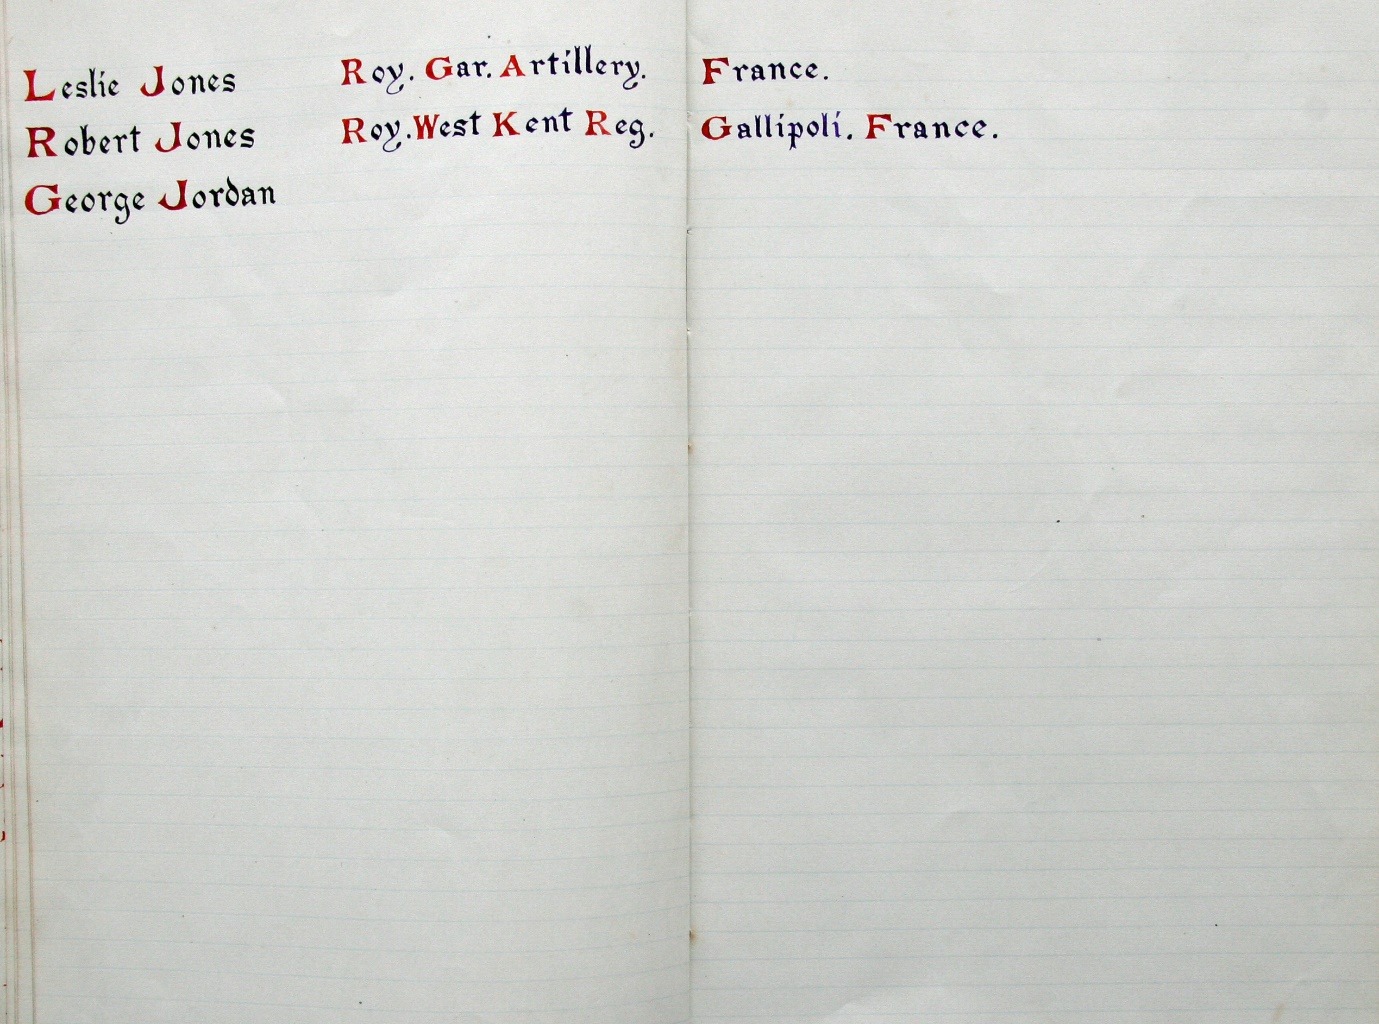 Leslie Jones Roy. Gar. Artillery. France.
Robert Jones Roy. West Kent Reg. Gallipoli. France.
George Jordan